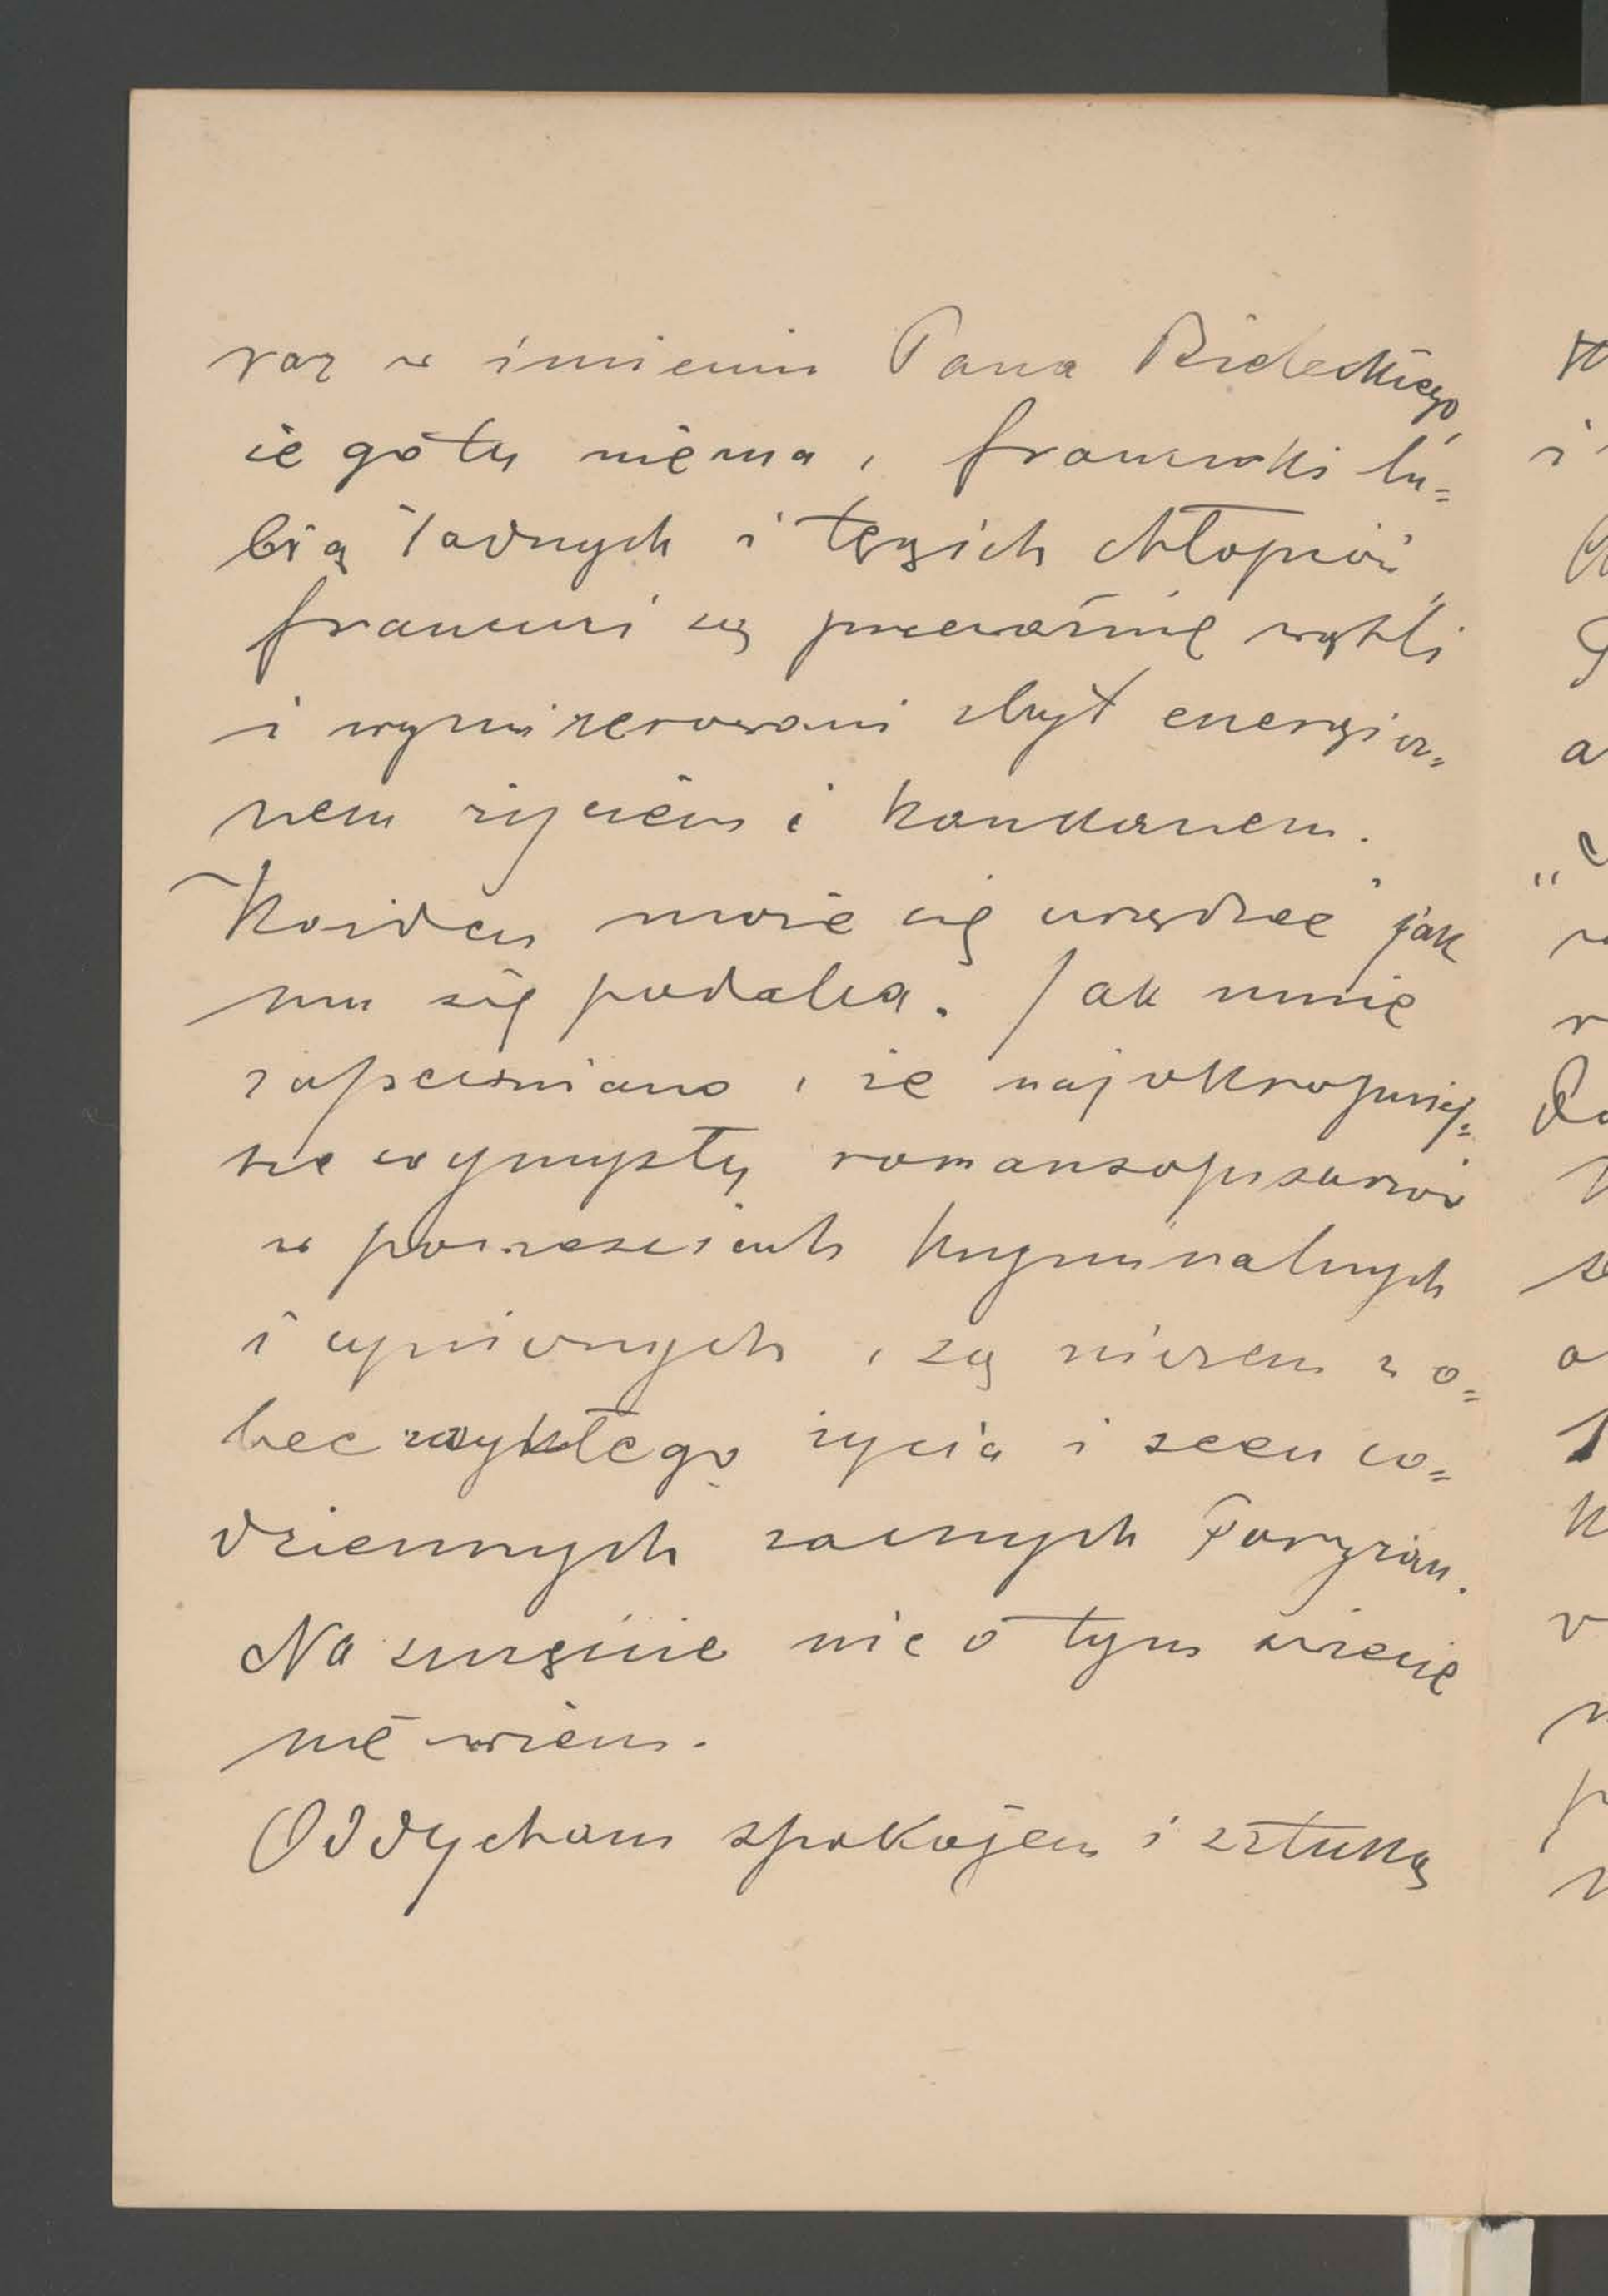 raz w imieniu Pana Bideckiego,
że goły niema, francuzki lu=
bią ładnych i tęgich chłopców,
francuzi są przeważnie wątli
i wymizerowani zbyt energicz=
nem życiem i kankanem.
Każden może się urządzać jak
mu się podoba. Jak mnie
zapewniano, że najokropniej=
sze wymysły romansopisarzów
w powieściach kryminalnych
i cynicznych, są niczem wo=
bec zwykłego życia i scen co=
dziennych zacnych Paryżan.
Na szczęście nic o tym świecie
nie wiem.
Oddycham spokojem i sztuką